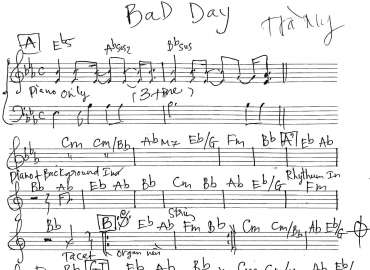 BaD Day
Thà My
A Eb5 Absus2 Bbsus
Piano only (3 time)
Cm Cm/Bb Ab Mz Eb/G Fm Bb A' Eb Ab
Piano + Background
Bb Ab Eb Ab Bb Cm Bb Ab Eb/G Rhythm In Fm
Bb B Eb Ab Fm Bb Cm Cm/Bb Ab Eb/G
Strin
Tacet organ
Bb